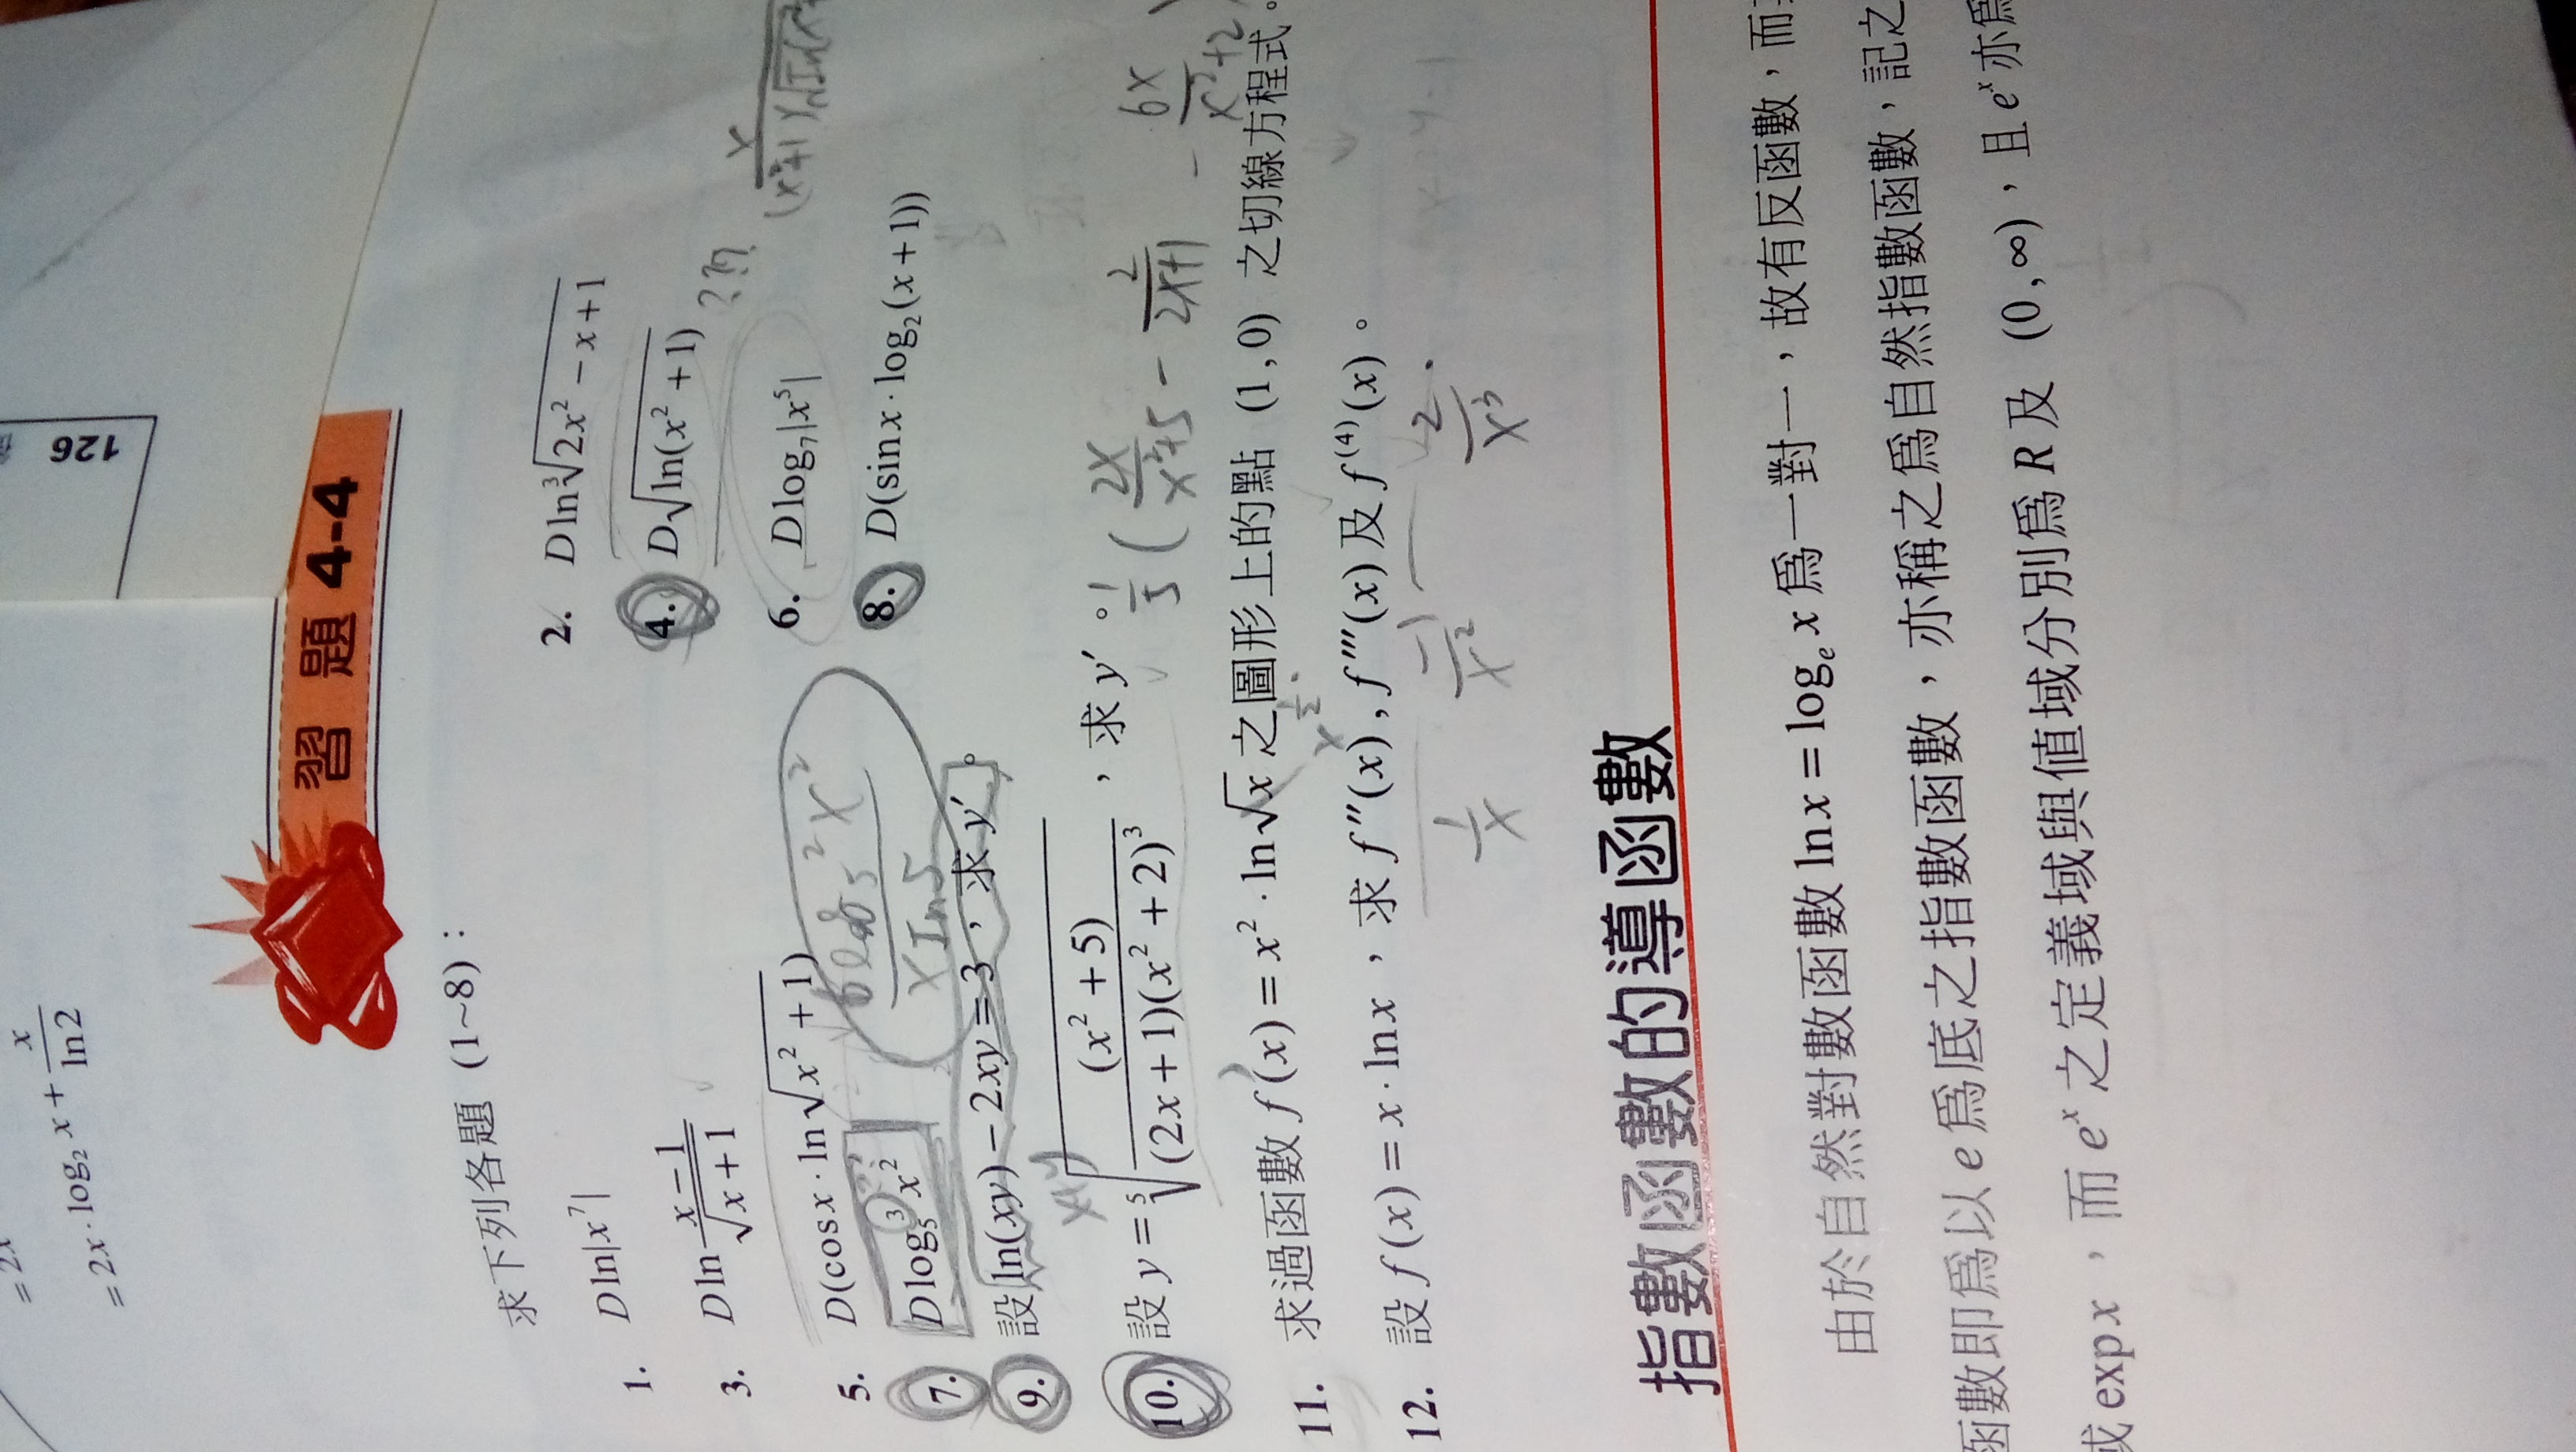 126
= 2x · log₂ x + x/ln2
習 題 4-4
求下列各題 (1~8)：
1. D ln|x⁷|
2. D ln ∛(2x² − x + 1)
3. D ln (x − 1)/√(x + 1)
4. D√(ln(x² + 1))
??ln
5. D(cos x · ln √(x² + 1))
6. D log₇|x⁵|
7. D log₅³ x²
6log₅² x² / x ln5
8. D(sin x · log₂(x + 1))
9. 設 ln(xy) − 2xy = 3，求 y′。
10. 設 y = ⁵√((x² + 5)/((2x + 1)(x² + 2)³))，求 y′。
1/5 (2x/(x²+5) − 2/(2x+1) − 6x/(x²+2))
11. 求過函數 f(x) = x² · ln√x 之圖形上的點 (1, 0) 之切線方程式。
x^(1/2)
12. 設 f(x) = x · ln x，求 f″(x), f‴(x) 及 f⁽⁴⁾(x)。
1/x −1/x² 2/x³
指數函數的導函數
由於自然對數函數 ln x = logₑ x 為一對一，故有反函數，而
函數即為以 e 為底之指數函數，亦稱之為自然指數函數，記之
或 exp x，而 eˣ 之定義域與值域分別為 R 及 (0, ∞)，且 eˣ 亦為